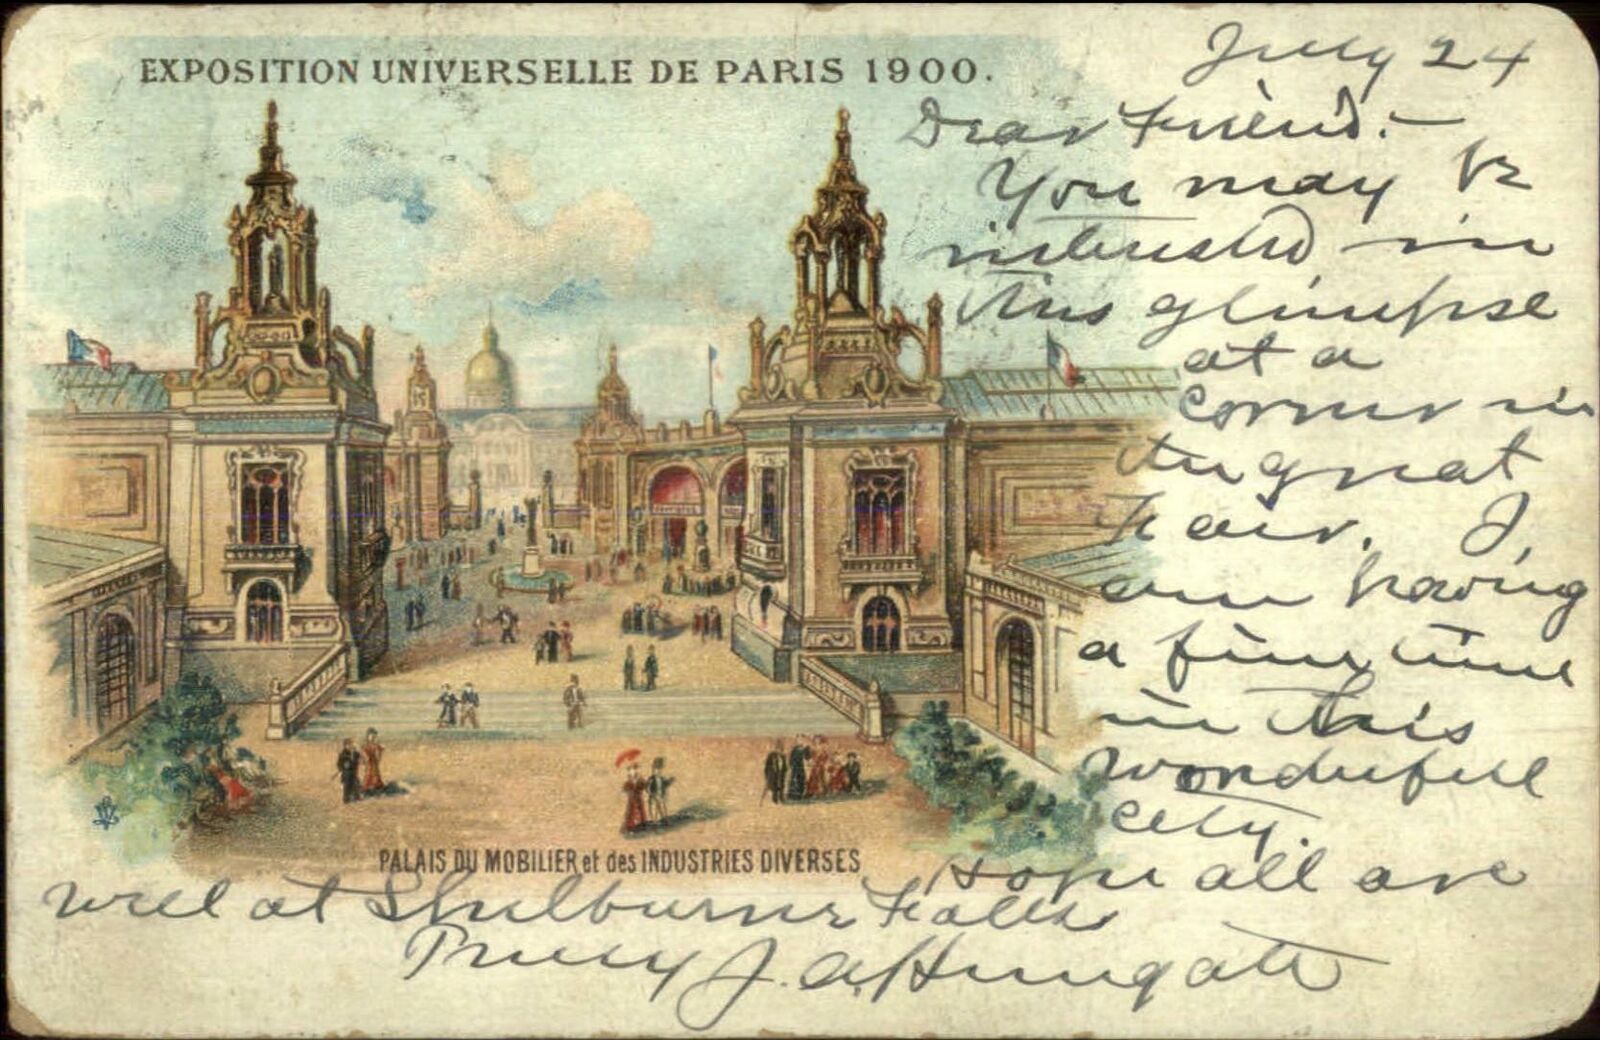 EXPOSITION UNIVERSELLE DE PARIS 1900.
July 24
Dear Friend:—
You may be
interested in
this glimpse
at a
corner in
the great
Fair. I,
am having
a fine time
in this
wonderful
city.
Hope all are
well at Shelburne Falls
Truly J. A. Hungate
PALAIS DU MOBILIER et des INDUSTRIES DIVERSES